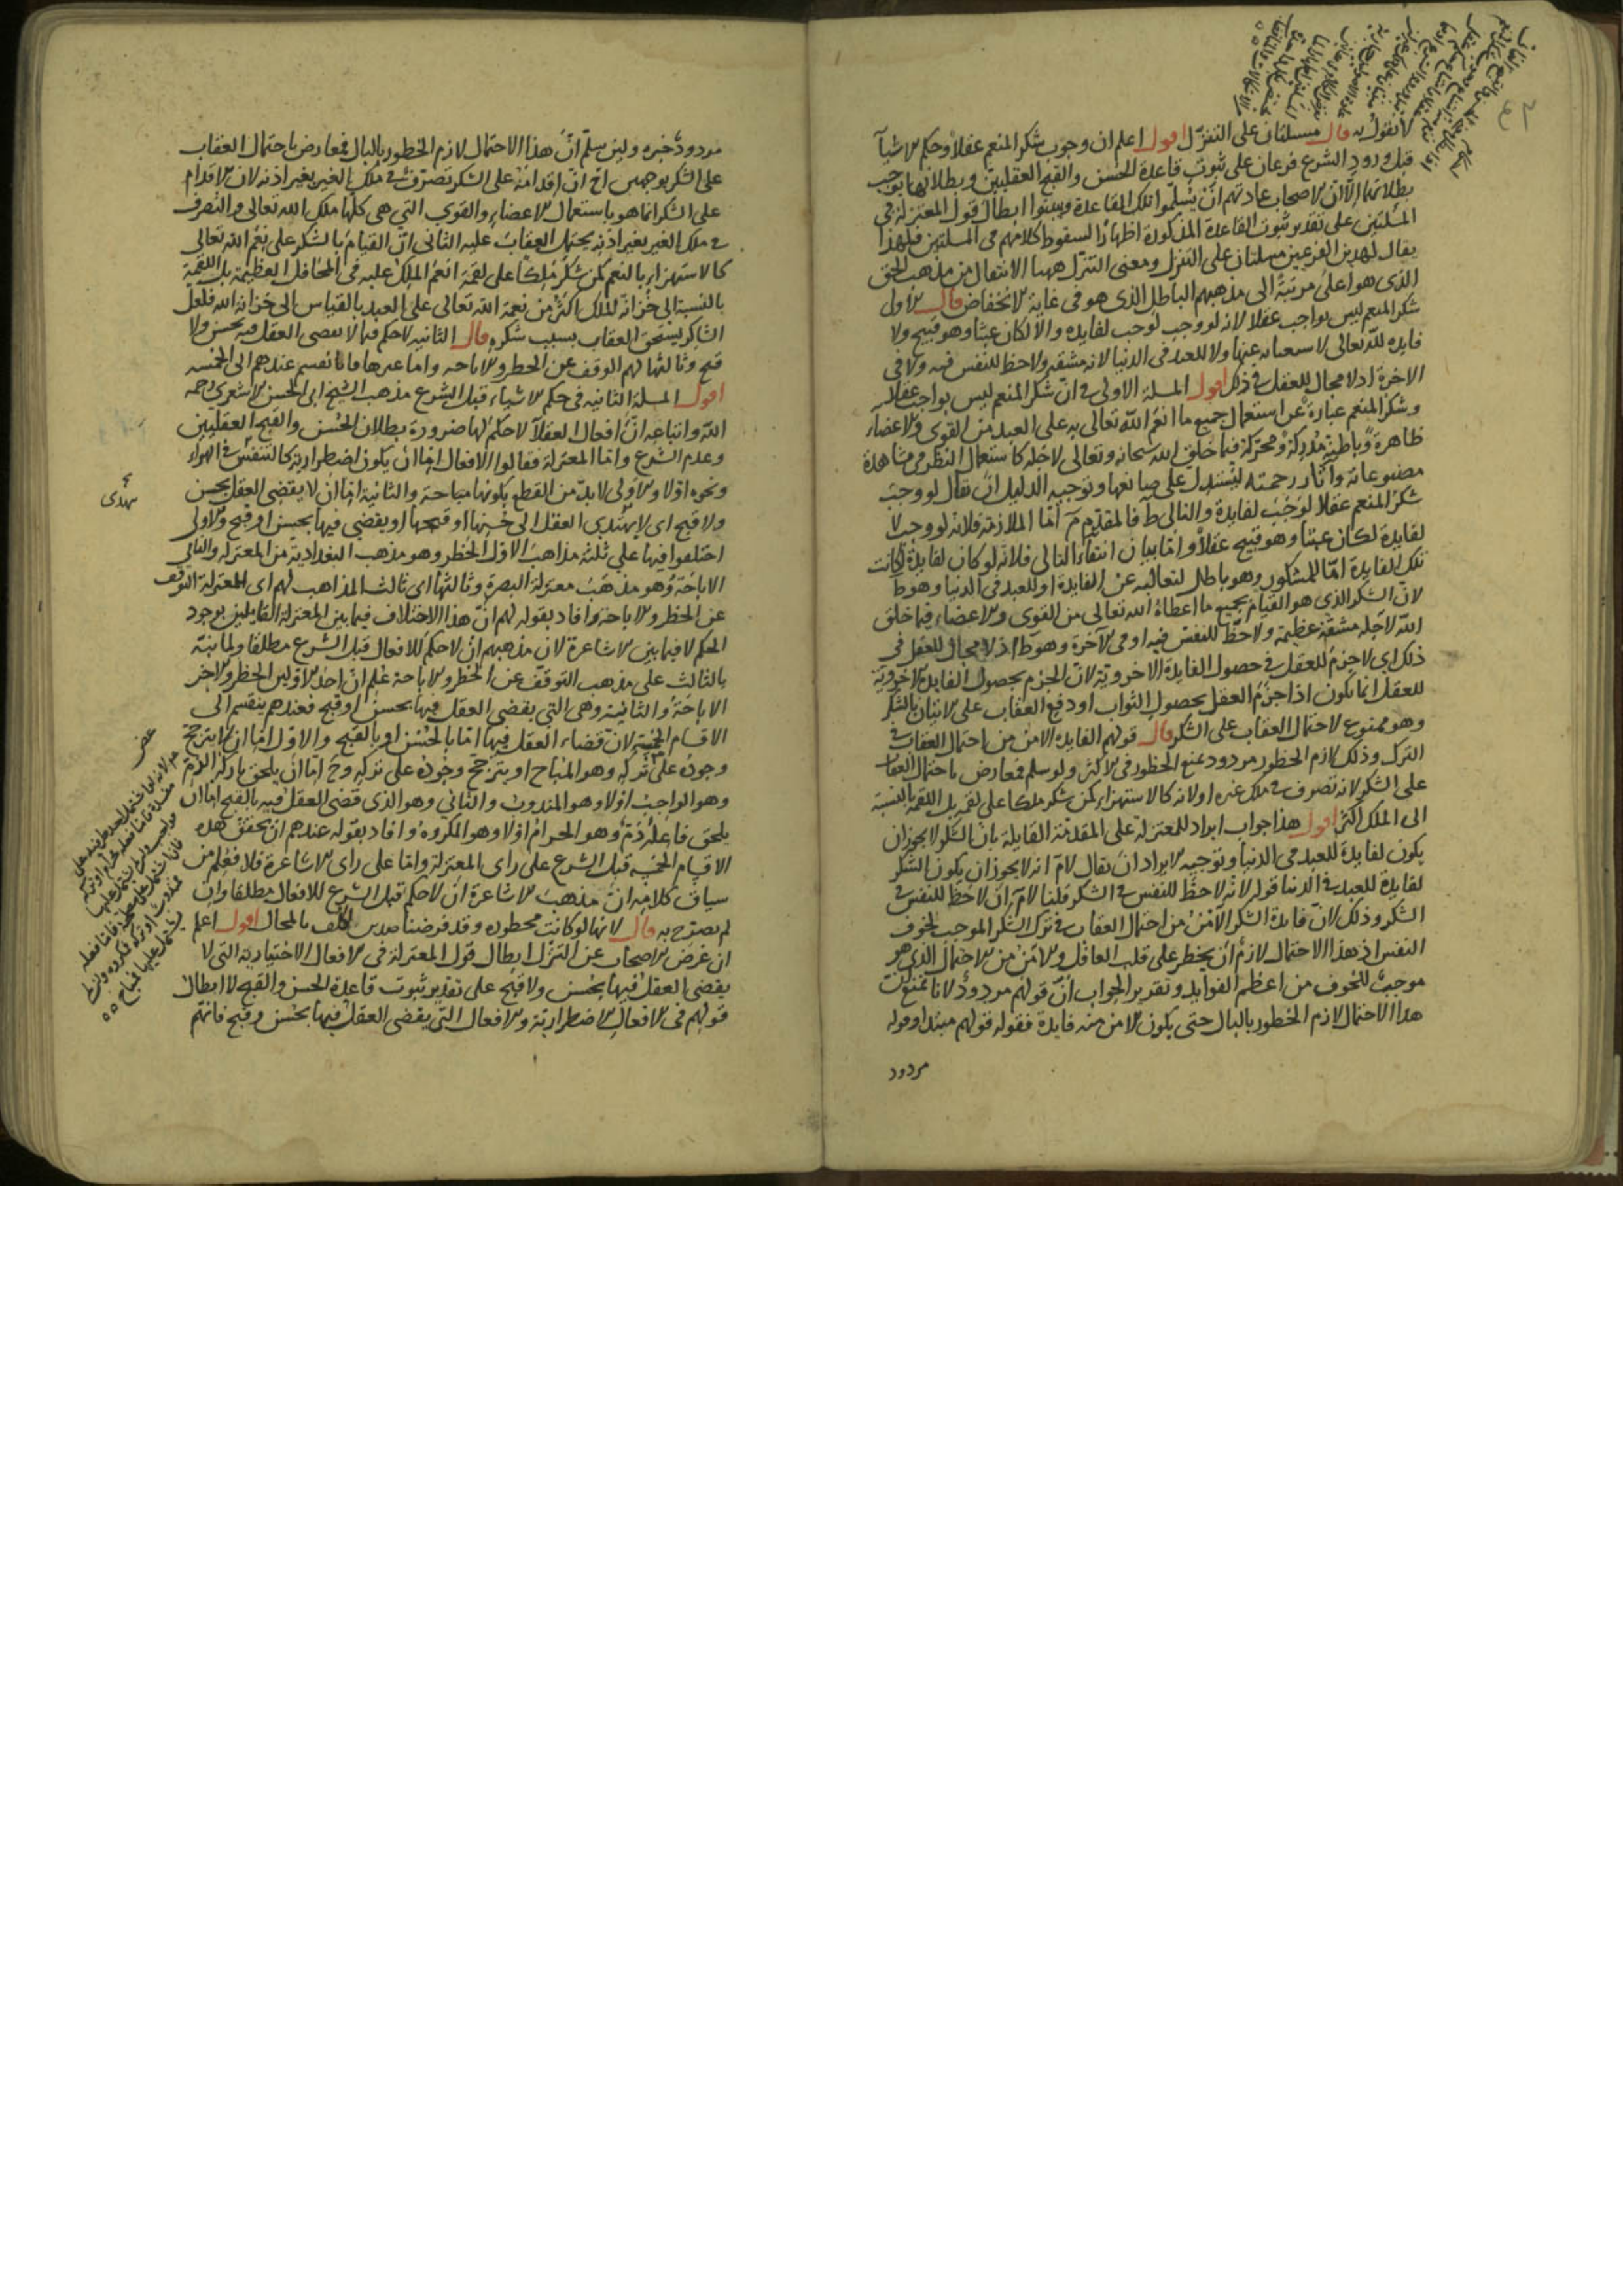 لا نقول به قال مسئلتان على التنزل اقول اعلم ان وجوب شكر المنعم عقلا وحكم الاشيآ
قبل ورود الشرع فرعان على ثبوت قاعدة الحسن والقبح العقليين وبطلانها يوجب
بطلانهما الا ان الاصحاب عادتهم ان يسلموا تلك القاعدة ويبينوا ابطال قول المعتزلة فى
المسلتين على تقدير ثبوت القاعدة المذكورة اظهارا لسقوط كلامهم فى المسلتين فلهذا
يقال لهذين الفرعين مسلتان على التنزل ومعنى التنزل ههنا الانتقال من مذهب الحق
الذى هو اعلى مرتبة الى مذهبهم الباطل الذى هو فى غاية الانخفاض قال الاول
شكر المنعم ليس بواجب عقلا لانه لو وجب لوجب لفايده والا لكان عبثا وهو قبيح ولا
فايده لله تعالى لا سعاله عنها ولا للعبد فى الدنيا لانه مشقه ولا حظ للنفس فيه ولا فى
الاخرة اذ لا مجال للعقل فى ذلك اقول المسلة الاولى فى ان شكر المنعم ليس بواجب عقلا
وشكر المنعم عبارة عن استعمال جميع ما انعم الله تعالى به على العبد من القوى والاعضاء
ظاهرة وباطنة مدركة ومحركة فيما خلق الله سبحانه وتعالى لاجله كاستعمال النظر فى مشاهدة
مصنوعاته واثار رحمته ليستدل على صانعها وتوجيه الدليل ان يقال لو وجب
شكر المنعم عقلا لوجب لفايدة والتالى ط فالمقدم م اما الملازمة فلانه لو وجب لا
لفايدة لكان عبثا وهو قبيح عقلا واما بيان انتفاء التالى فلانه لو كان لفايدة لكانت
تلك الفايدة اما للمشكور وهو باطل لتعاليه عن الفايدة او للعبد فى الدنيا وهو ط
لان الشكر الذى هو القيام بجميع ما اعطاه الله تعالى من القوى والاعضاء فيما خلق
الله لاجله مشقة عظيمة ولا حظ للنفس فيه او فى الآخرة وهو ط اذ لا مجال للعقل فى
ذلك اى لا جزم للعقل فى حصول الفايدة الاخروية لان الجزم بحصول الفايدة الاخروية
للعقل انما يكون اذا جزم العقل بحصول الثواب او دفع العقاب على الاتيان بالشكر
وهو ممنوع لاحتمال العقاب على الشكر قال قولهم الفايده الامن من احتمال العقاب فى
الترك وذلك لازم الخطور مردود بمنع الخطور فى الاكثر ولو سلم فمعارض باحتمال العقاب
على الشكر لانه تصرف فى ملك غيره او لانه كالاستهزاء كمن شكر ملكا على لقمة بل اللقمة بالنسبة
الى الملك اكثر اقول هذا جواب ايراد للمعتزلة على المقدمة القايلة بان الشكر لا يجوز ان
يكون لفايدة للعبد فى الدنيا وتوجيه الايراد ان يقال لام انه لا يجوز ان يكون الشكر
لفايدة للعبد فى الدنيا قوله لانه لا حظ للنفس فى الشكر قلنا لام ان لا حظ للنفس فى
الشكر وذلك لان فايدة الشكر الامن من احتمال العقاب فى ترك الشكر الموجب لخوف
النفس اذ هذا الاحتمال لازم ان يخطر على قلب العاقل والامن من الاحتمال الذى هو
موجب للخوف من اعظم الفوايد وتقرير الجواب ان قولهم مردود لانا نمنع كون
هذا الاحتمال لازم الخطور بالبال حتى يكون الامن منه فايدة فقوله قولهم مبتدا وقوله
مردود
مردود خبره ولئن سلم ان هذا الاحتمال لازم الخطور بالبال فمعارض باحتمال العقاب
على الشكر بوجهين اح ان اقدامه على الشكر تصرف فى ملك الغير بغير اذنه لان الاقدام
على الشكر انما هو باستعمال الاعضاء والقوى التى هى كلها ملك الله تعالى والتصرف
فى ملك الغير بغير اذنه يحتمل العقاب عليه الثانى ان القيام بالشكر على نعم الله تعالى
كالاستهزاء بالمنعم كمن شكر ملكا على لقمة انعم الملك عليه فى المحافل العظيمة بل اللقمة
بالنسبة الى خزانة الملك اكثر من نعمة الله تعالى على العبد بالقياس الى خزانة الله فلعل
الشاكر يستحق العقاب بسبب شكره قال الثانيه لا حكم فيما لا يقضى العقل فيه بحسن ولا
قبح وثالثها لهم الوقف عن الحظر والاباحه واما غيرها فانقسم عندهم الى الخمسه
اقول المسلة الثانيه فى حكم الاشياء قبل الشرع مذهب الشيخ ابى الحسن الاشعرى رحمه
الله واتباعه ان افعال العقلآ لا حكم لها ضرورة بطلان الحسن والقبح العقليين
وعدم الشرع واما المعتزلة فقالوا الافعال اما ان يكون اضطرارية كالتنفس فى الهواء
ونحوه او لا والاولى لا بد من القطع بكونها مباحة والثانية اما ان لا يقضى العقل بحسن
ولا قبح اى لا يهتدى العقل الى حسنها او قبحها او يقضى فيها بحسن او قبح والاولى
اختلفوا فيها على ثلثة مذاهب الاول الحظر وهو مذهب البغدادية من المعتزلة والثانى
الاباحة وهو مذهب معتزلة البصرة وثالثها اى ثالث المذاهب لهم اى للمعتزلة التوقف
عن الحظر والاباحة وافاد بقوله لهم ان هذا الاختلاف فيما بين المعتزلة القايلين بوجود
الحكم لا فيما بين الاشاعرة لان مذهبهم ان لا حكم للافعال قبل الشرع مطلقا ولما نبه
بالثالث على مذهب التوقف عن الحظر والاباحة علم ان احد الاولين الحظر والاخر
الاباحة والثانية وهى التى يقضى العقل فيها بحسن او قبح فعندهم ينقسم الى
الاقسام الخمسة لان قضاء العقل فيها اما بالحسن او بالقبح والاول اما ان لا يترجح
وجوده على تركه وهو المباح او يترجح وجوده على تركه وح اما ان يلحق تاركه الذم
وهو الواجب او لا وهو المندوب والثانى وهو الذى قضى العقل فيه بالقبح اما ان
يلحق فاعله ذم وهو الحرام او لا وهو المكروه وافاد بقوله عندهم ان تحقق هذه
الاقسام الخمسه قبل الشرع على راى المعتزلة واما على راى الاشاعرة فلا فعلم من
سياق كلامه ان مذهب الاشاعرة ان لا حكم قبل الشرع للافعال مطلقا وان
لم يصرح به قال لانها لو كانت محظوره وقد فرضنا ضدين لكلف بالمحال اقول اعلم
ان غرض الاصحاب عن التنزل ابطال قول المعتزلة فى الافعال الاختيارية التى لا
يقضى العقل فيها بحسن ولا قبح على تقدير ثبوت قاعدة الحسن والقبح لا ابطال
قولهم فى الافعال الاضطرارية والافعال التى يقضى العقل فيها بحسن وقبح فانهم